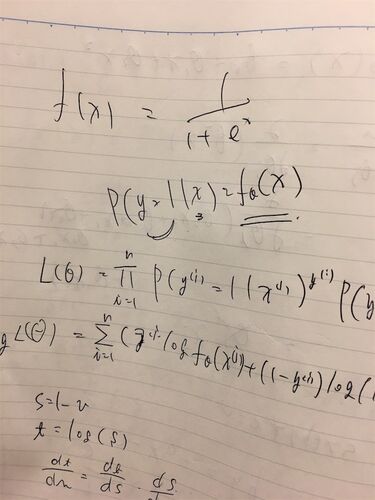 f(x) = 1 / 1 + e^x
P(y=1|x) = fθ(x)
L(θ) = ∏_{i=1}^{n} P(y^(i) = 1 | x^(i))^y^(i) P(y
g L(θ) = ∑_{i=1}^{n} (y^(i) log fθ(x^(i)) + (1 - y^(i)) log (1
s = 1 - v
t = log(s)
dt/dn = dt/ds · ds/